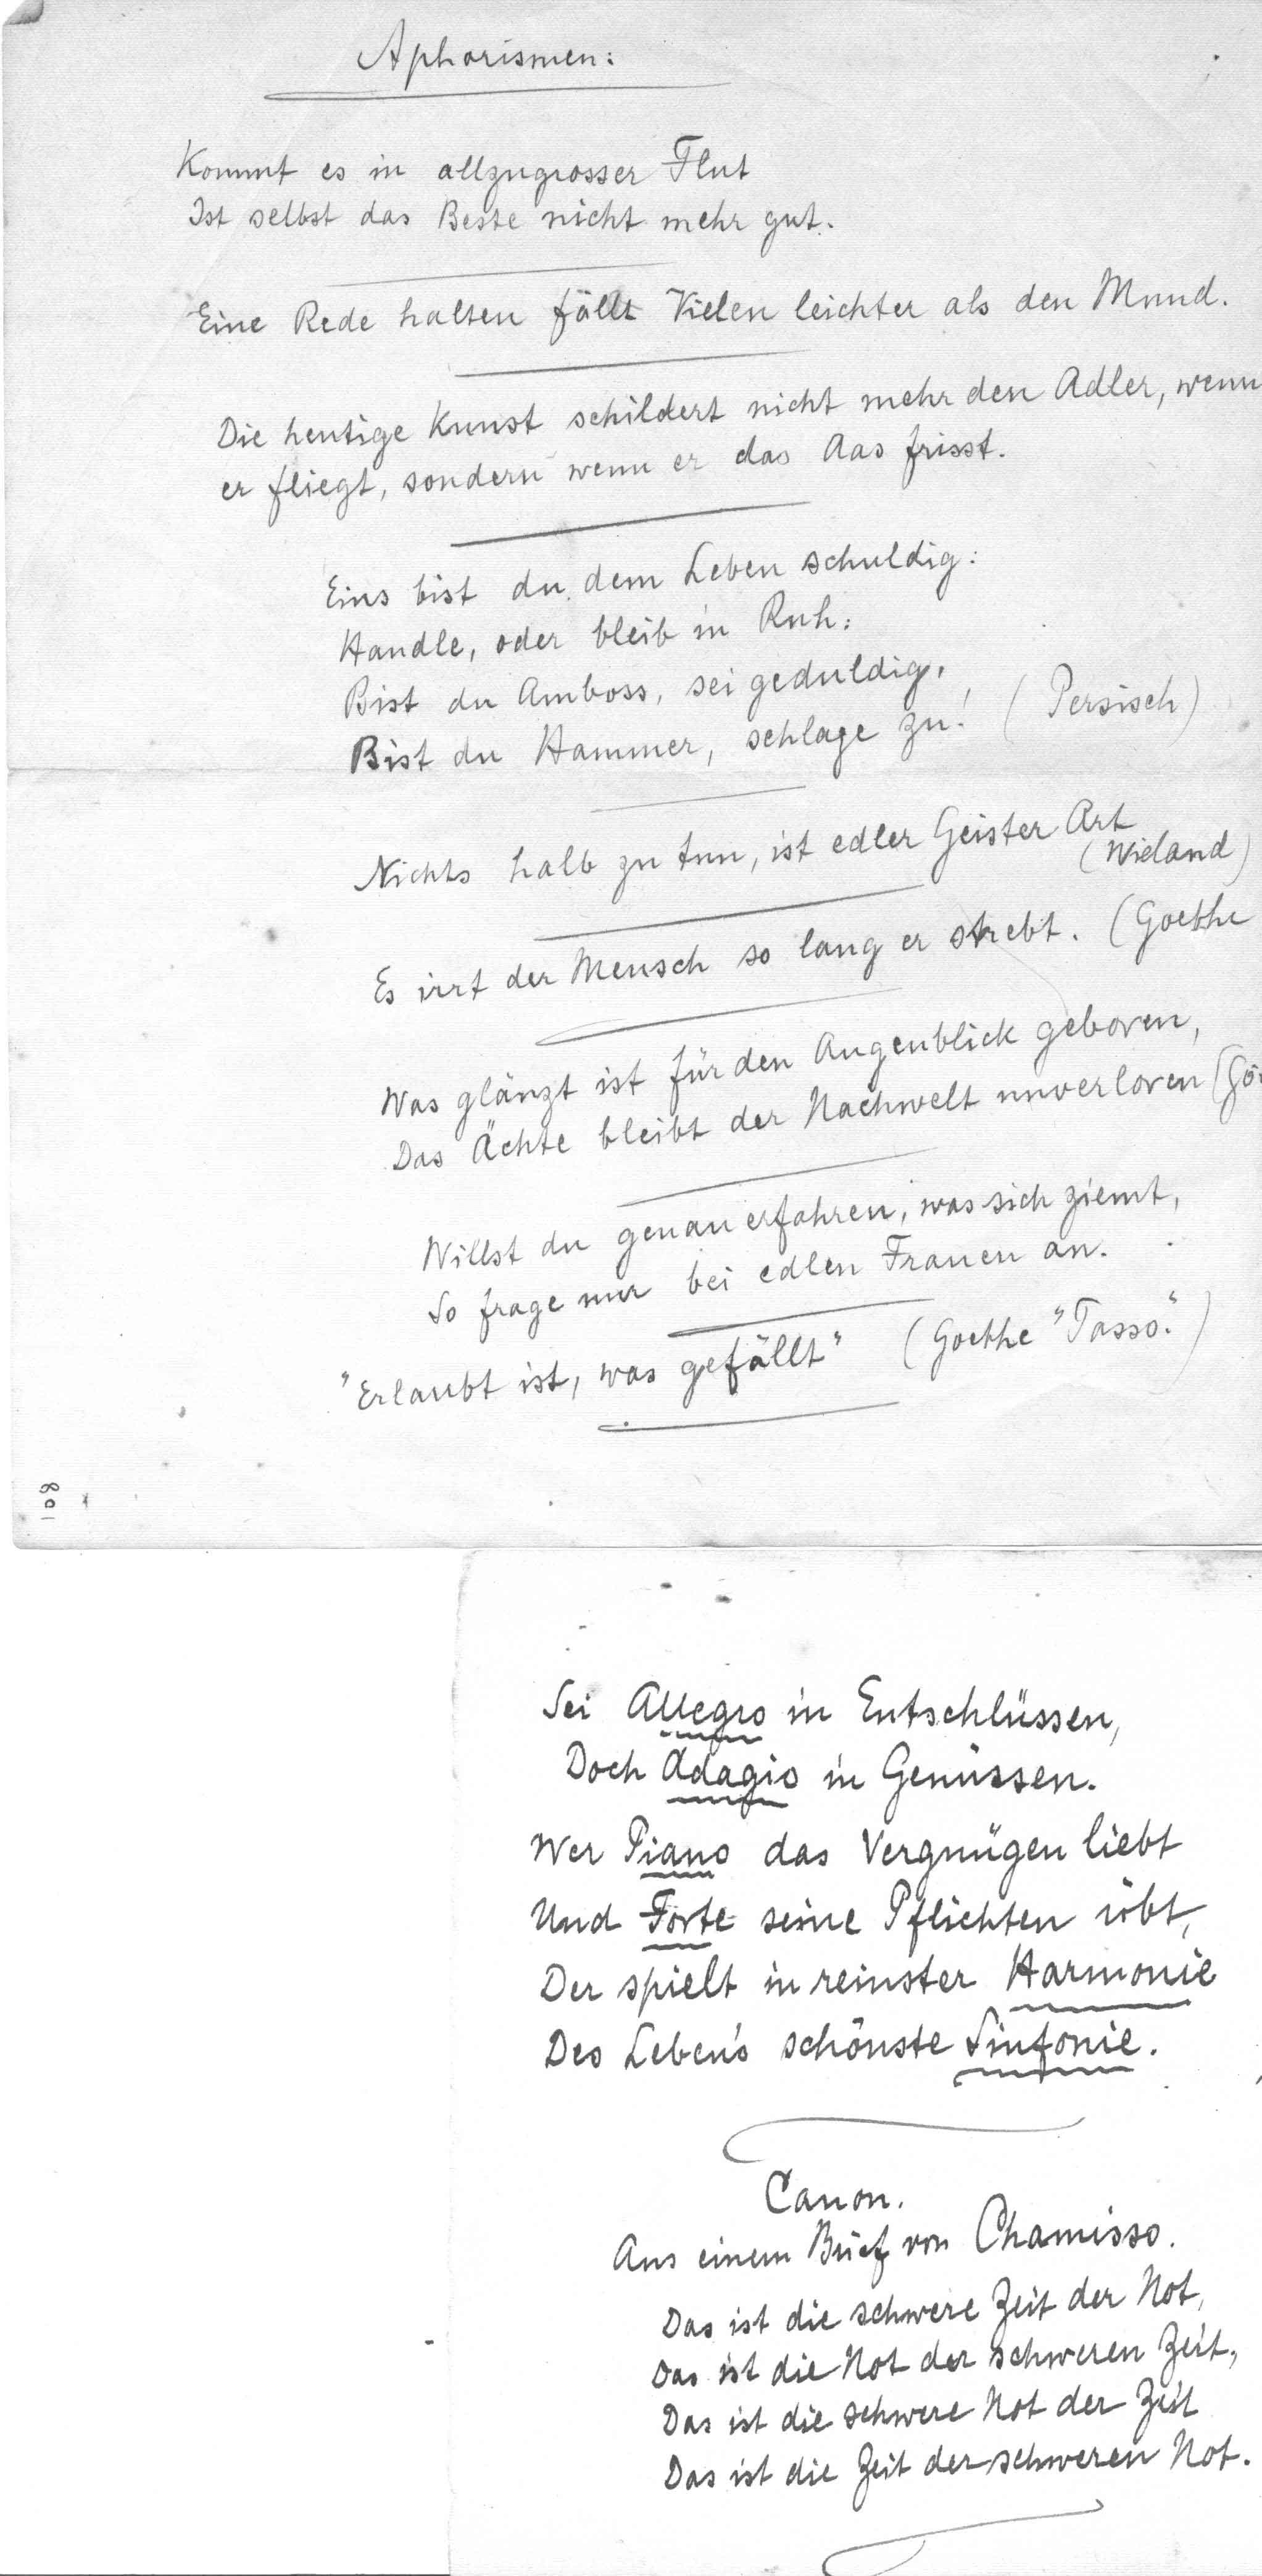 Aphorismen:
Kommt es in allzugrosser Flut
Ist selbst das Beste nicht mehr gut.
Eine Rede halten fällt Vielen leichter als den Mund.
Die heutige Kunst schildert nicht mehr den Adler, wenn
er fliegt, sondern wenn er das Aas frisst.
Eins bist du dem Leben schuldig:
Handle, oder bleib in Ruh:
Bist du Amboss, sei geduldig,
Bist du Hammer, schlage zu! (Persisch)
Nichts halb zu tun, ist edler Geister Art
(Wieland)
Es irrt der Mensch so lang er strebt. (Goethe
Was glänzt ist für den Augenblick geboren,
Das Ächte bleibt der Nachwelt unverloren (Gö
Willst du genau erfahren, was sich ziemt,
So frage nur bei edlen Frauen an.
"Erlaubt ist, was gefällt" (Goethe "Tasso".)
Sei Allegro in Entschlüssen,
Doch Adagio in Genüssen.
Wer Piano das Vergnügen liebt
Und Forte seine Pflichten übt,
Der spielt in reinster Harmonie
Des Leben's schönste Sinfonie.
Canon.
Aus einem Brief von Chamisso.
Das ist die schwere Zeit der Not,
Das ist die Not der schweren Zeit,
Das ist die schwere Not der Zeit
Das ist die Zeit der schweren Not.